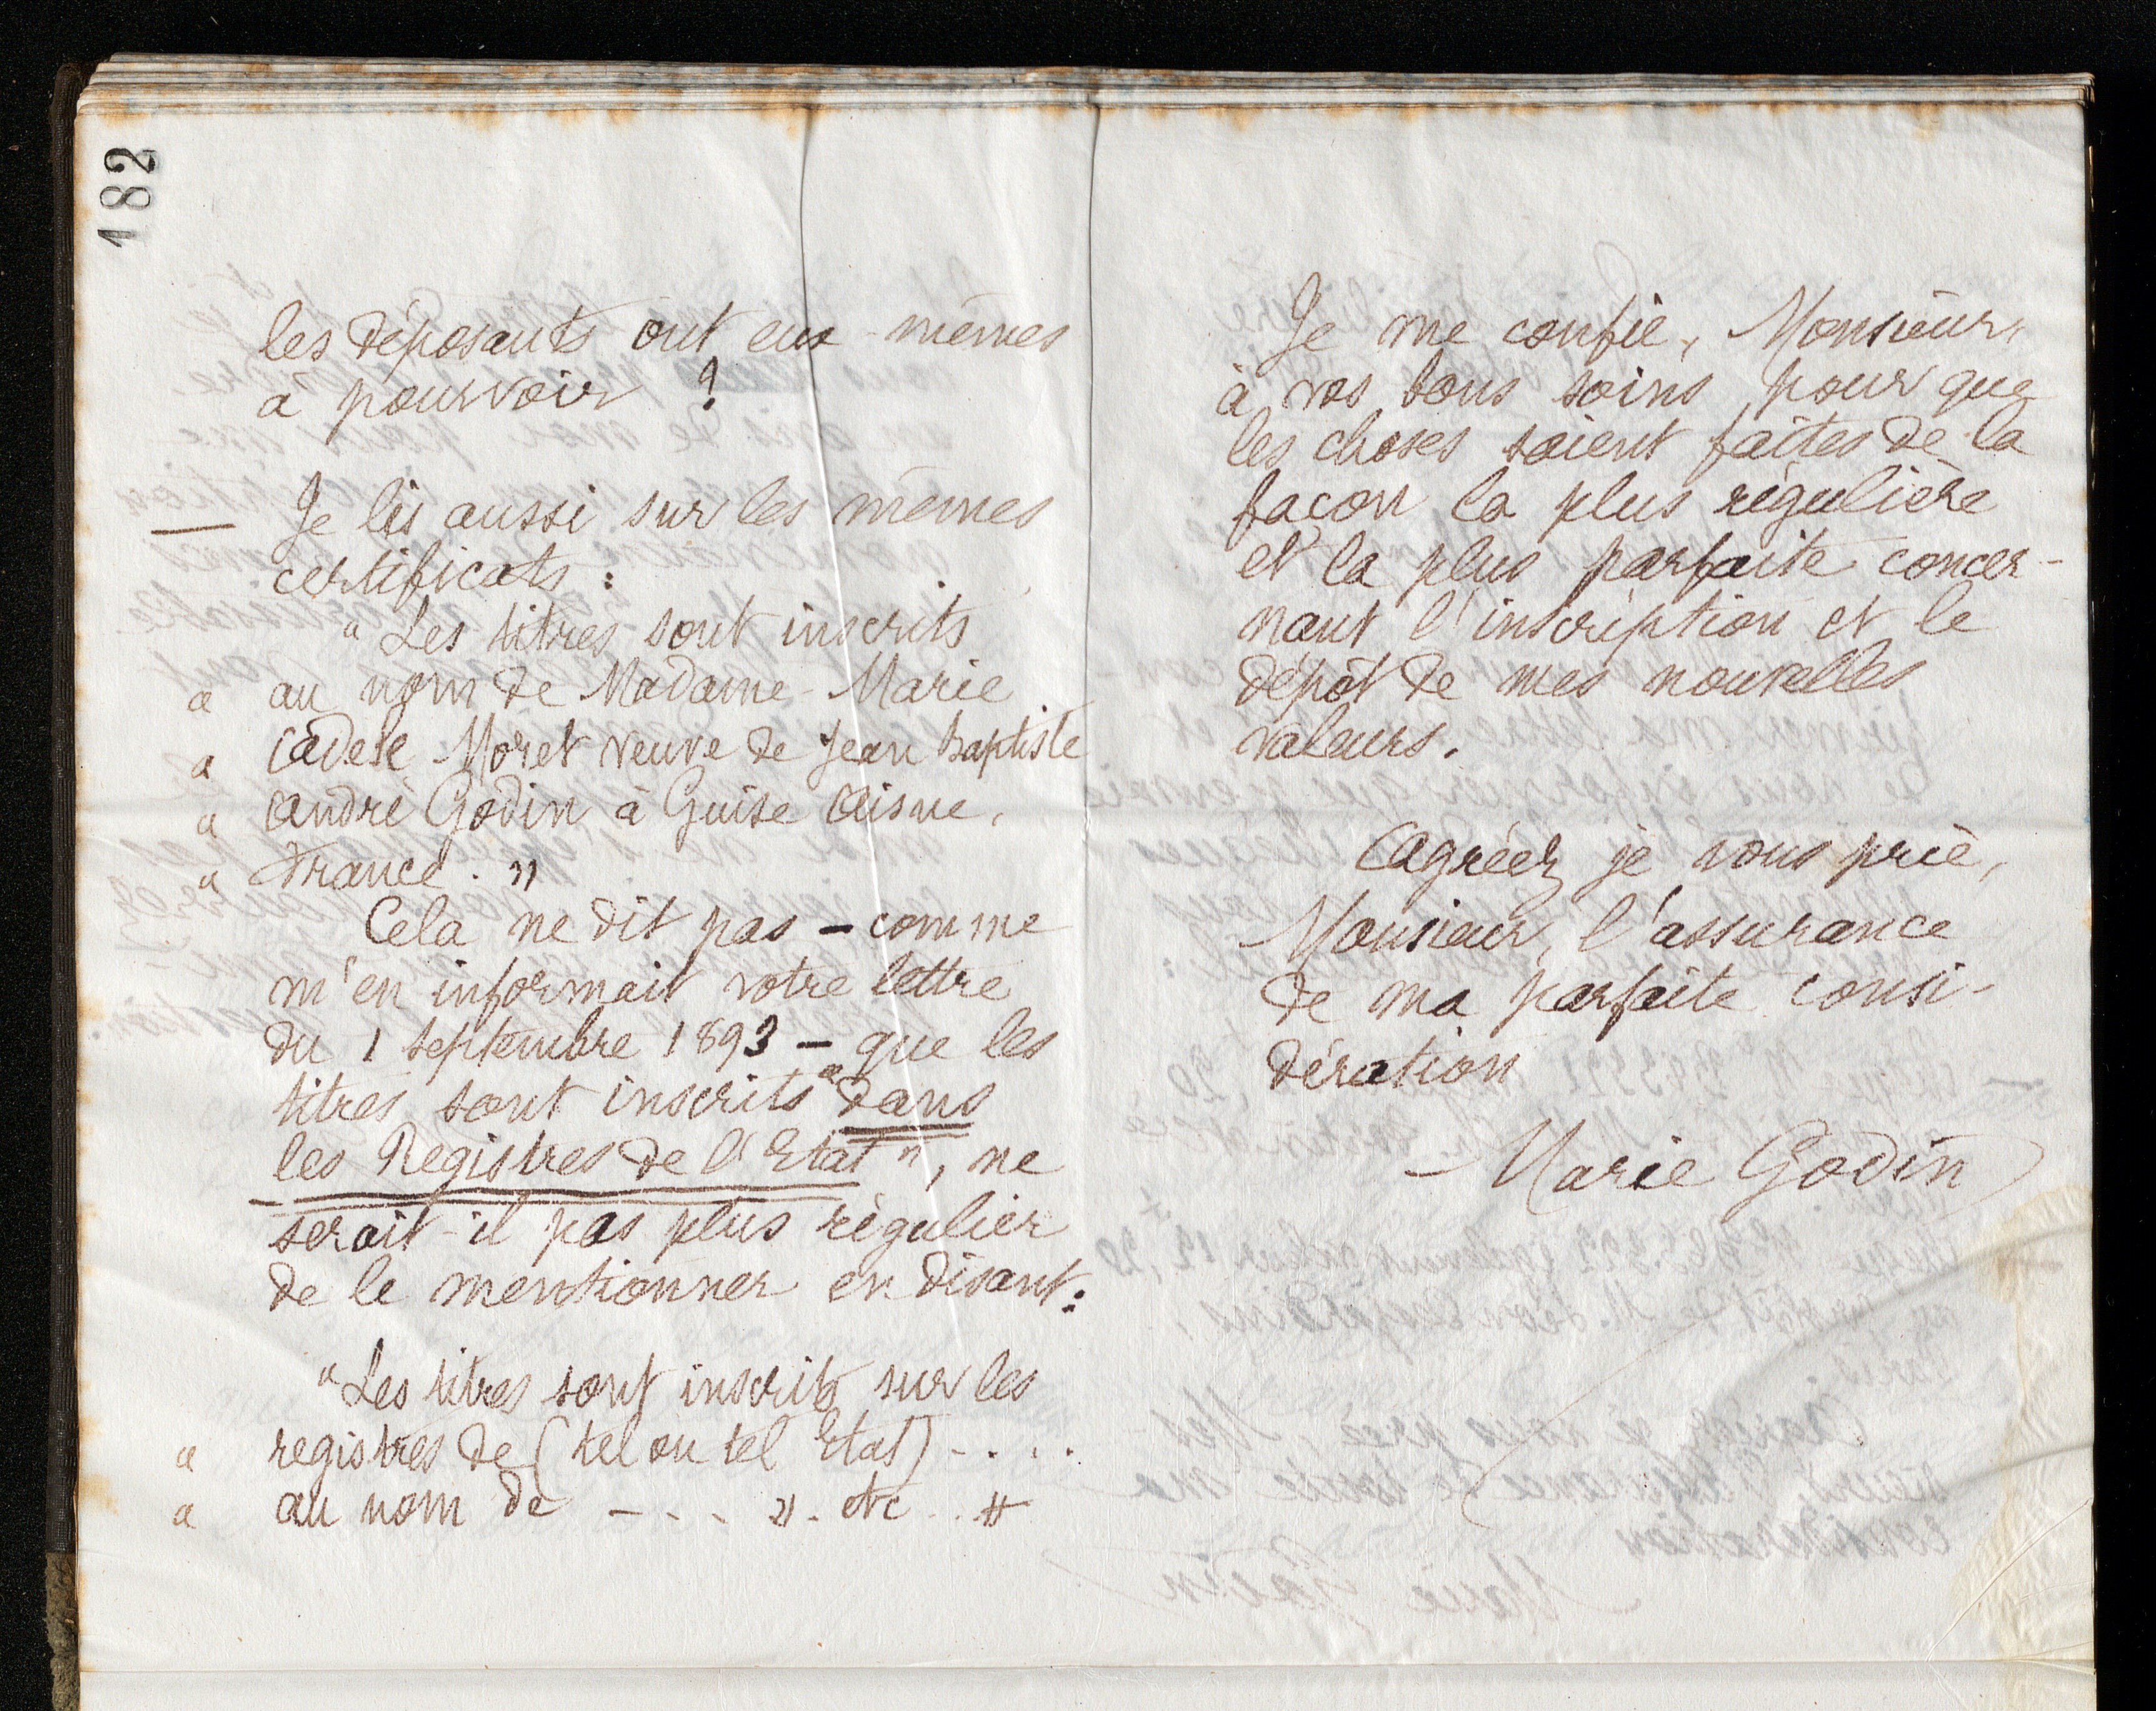 182
les déposants ont eux-mêmes
à pourvoir ?
— Je lis aussi sur les mêmes
certificats :
« Les titres sont inscrits
« au nom de Madame Marie
« Adèle Moret veuve de Jean Baptiste
« André Godin à Guise Aisne,
« France. »
Cela ne dit pas — comme
m'en informait votre lettre
du 1 septembre 1893 — que les
titres sont inscrits « dans
les Registres de l'Etat », ne
serait-il pas plus régulier
de le mentionner en disant :
« Les titres sont inscrits sur les
« registres de (tel ou tel Etat) - . . .
« au nom de - . . . » . etc . . »
Je me confie, Monsieur,
à vos bons soins pour que
les choses soient faites de la
façon la plus régulière
et la plus parfaite concer-
nant l'inscription et le
dépôt de mes nouvelles
valeurs.
Agréez je vous prie,
Monsieur, l'assurance
de ma parfaite consi-
dération
Marie Godin